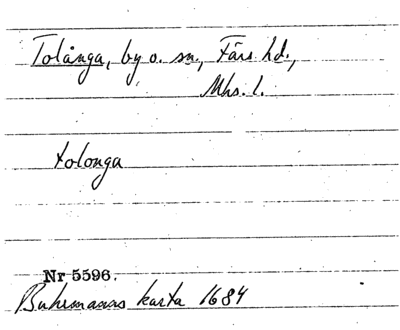 Tolånga, by o. sn., Färs hd.,
Mhs. l.
tolonga
Nr 5596.
Buhrmanns karta 1684